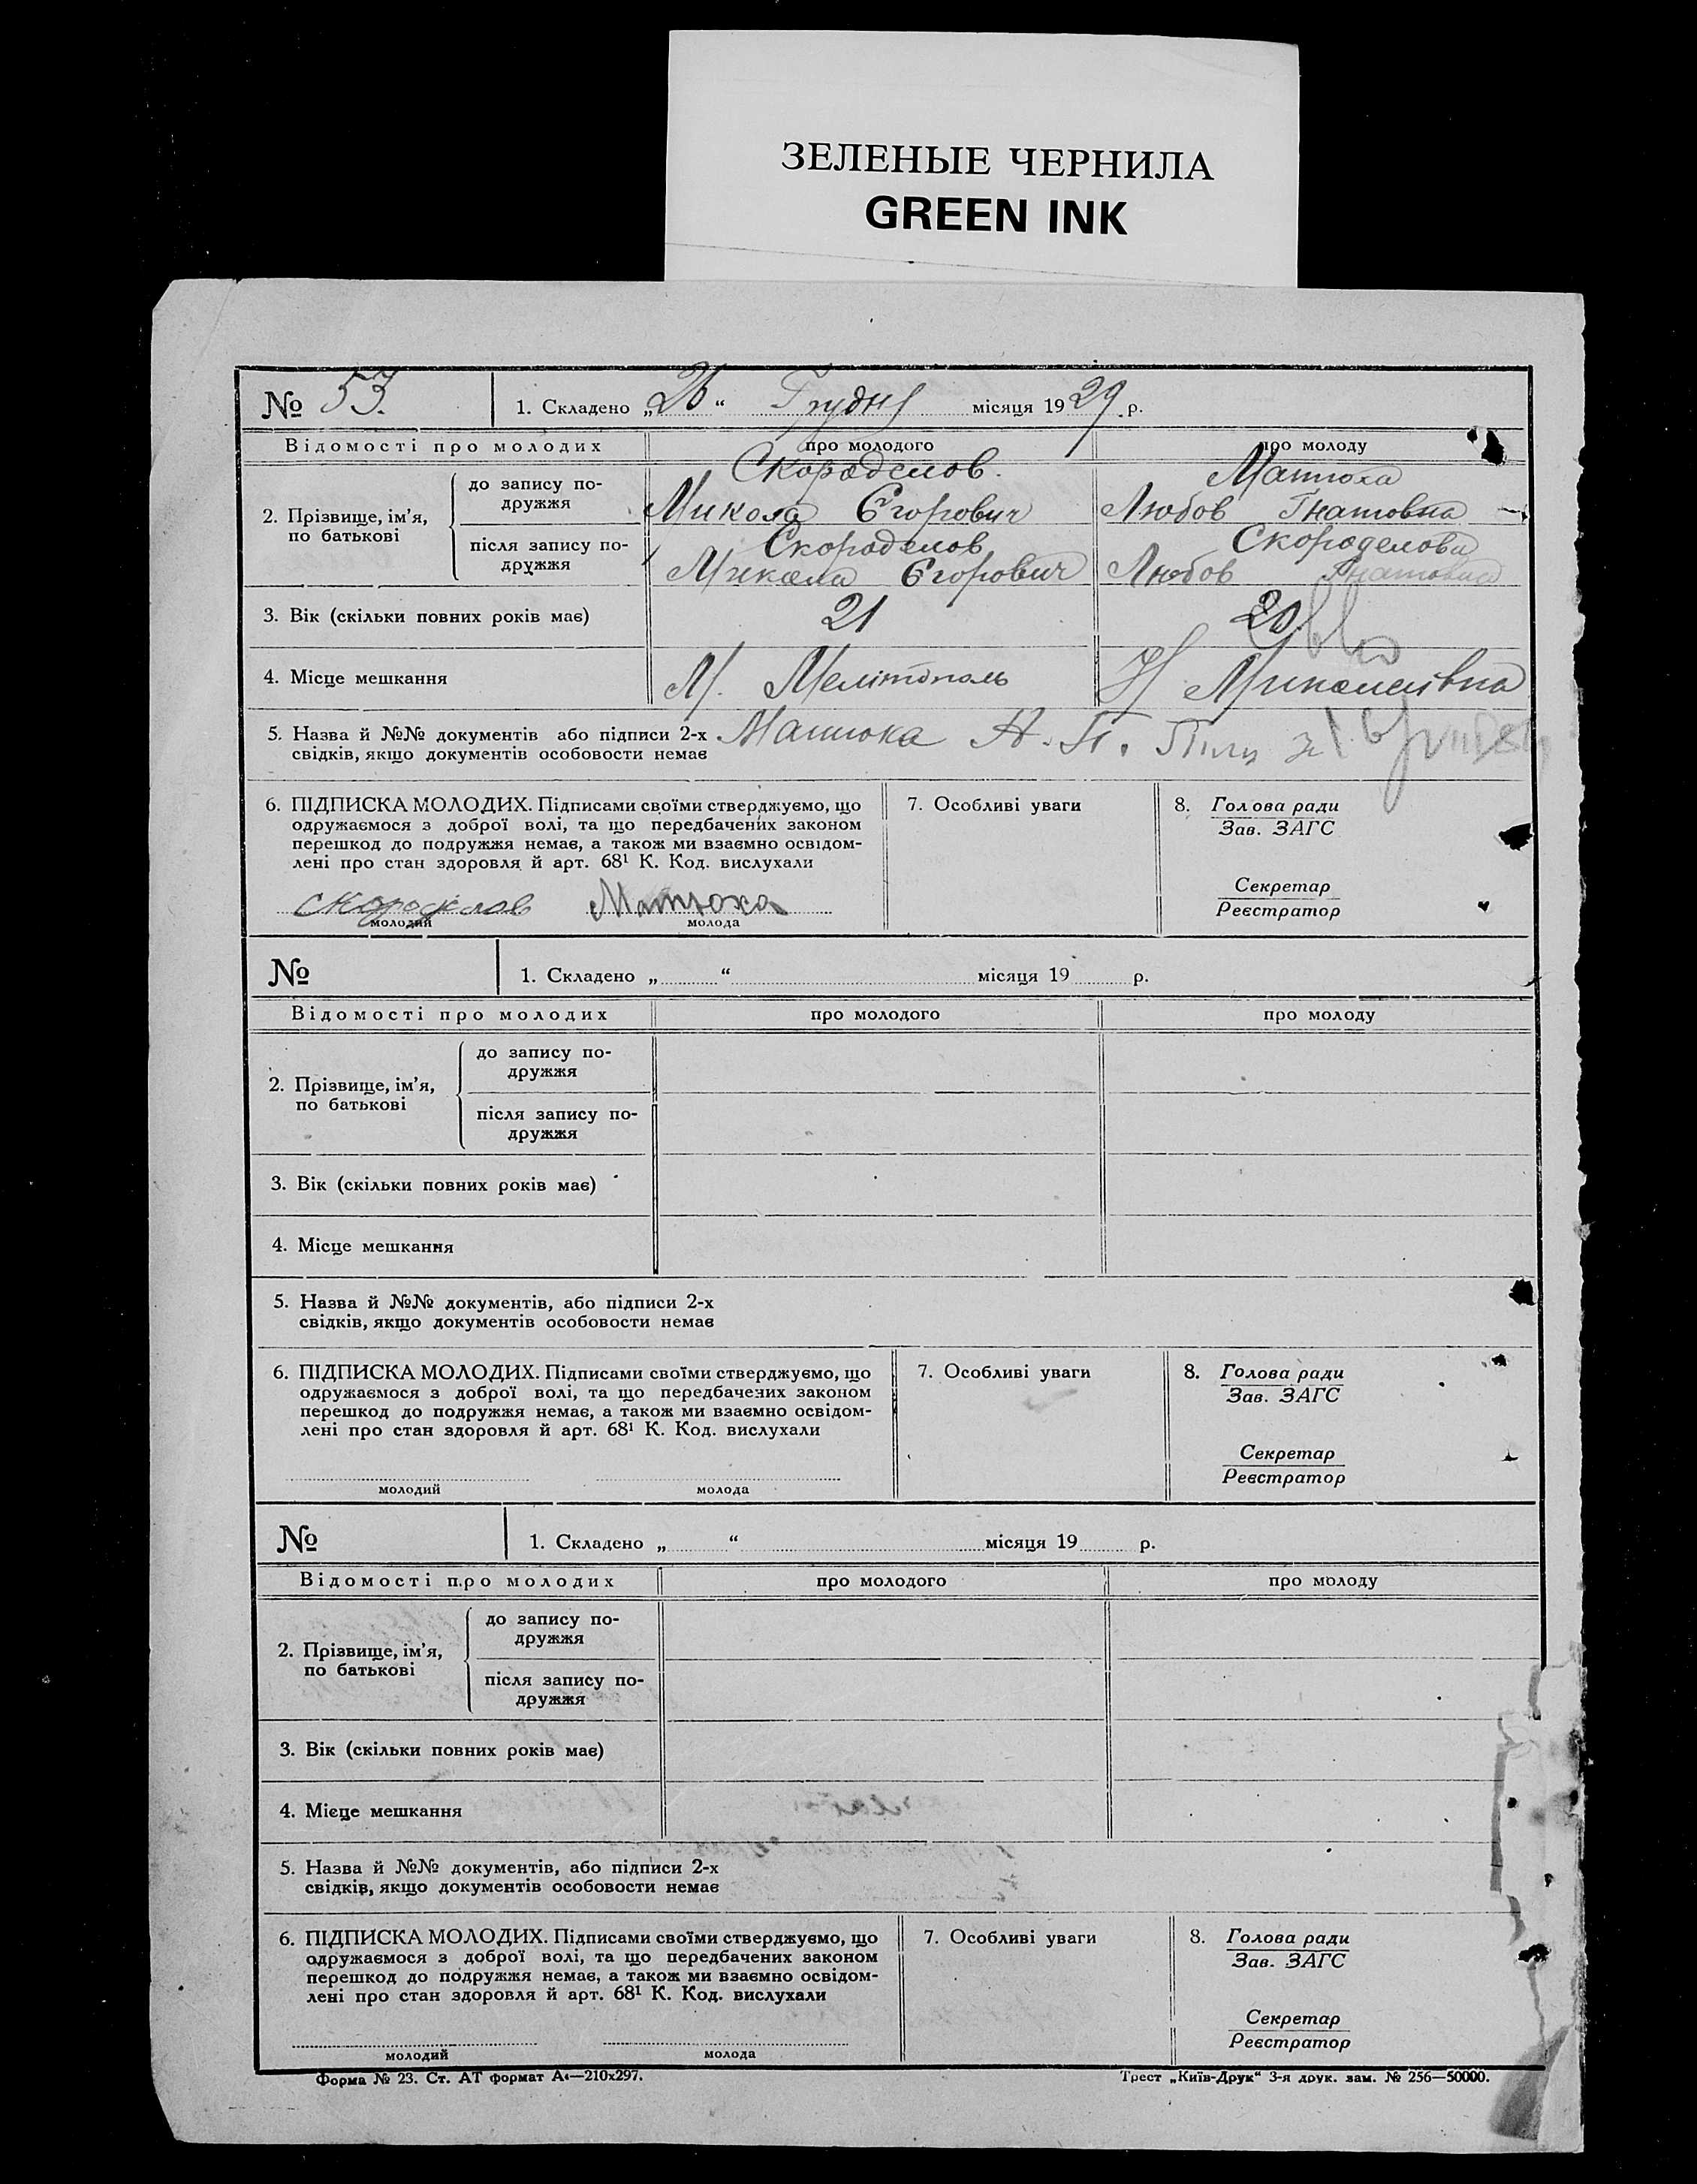 ЗЕЛЕНЫЕ ЧЕРНИЛА
GREEN INK
№ 53. 1. Складено „26“ Грудня місяця 1929 р.
Відомості про молодих про молодого про молоду
2. Прізвище, ім’я, по батькові
до запису подружжя
Скороделов. Матюха
Микола Єгорович Любов Гнатовна
після запису подружжя
Скороделов Скороделова
Микола Єгорович Любов Гнатовна
3. Вік (скільки повних років має) 21 20
4. Місце мешкання М. Мелітополь Н Миколаївна
5. Назва й №№ документів або підписи 2-х Матюха
свідків, якщо документів особовости немає
6. ПІДПИСКА МОЛОДИХ. Підписами своїми стверджуємо, що 7. Особливі уваги 8. Голова ради
одружаємося з доброї волі, та що передбачених законом Зав. ЗАГС
перешкод до подружжя немає, а також ми взаємно освідом-
лені про стан здоровля й арт. 68¹ К. Код. вислухали
Секретар
Скороделов Матюха Реєстратор
молодий молода
№ 1. Складено „ “ місяця 19 р.
Відомості про молодих про молодого про молоду
до запису по-
дружжя
2. Прізвище, ім’я,
по батькові
після запису по-
дружжя
3. Вік (скільки повних років має)
4. Місце мешкання
5. Назва й №№ документів, або підписи 2-х
свідків, якщо документів особовости немає
6. ПІДПИСКА МОЛОДИХ. Підписами своїми стверджуємо, що 7. Особливі уваги 8. Голова ради
одружаємося з доброї волі, та що передбачених законом Зав. ЗАГС
перешкод до подружжя немає, а також ми взаємно освідом-
лені про стан здоровля й арт. 68¹ К. Код. вислухали
Секретар
Реєстратор
молодий молода
№ 1. Складено „ “ місяця 19 р.
Відомості про молодих про молодого про молоду
до запису по-
дружжя
2. Прізвище, ім’я,
по батькові
після запису по-
дружжя
3. Вік (скільки повних років має)
4. Місце мешкання
5. Назва й №№ документів, або підписи 2-х
свідків, якщо документів особовости немає
6. ПІДПИСКА МОЛОДИХ. Підписами своїми стверджуємо, що 7. Особливі уваги 8. Голова ради
одружаємося з доброї волі, та що передбачених законом Зав. ЗАГС
перешкод до подружжя немає, а також ми взаємно освідом-
лені про стан здоровля й арт. 68¹ К. Код. вислухали
Секретар
Реєстратор
молодий молода
Форма № 23. Ст. АТ формат А₄—210x297. Трест „Київ-Друк“ 3-я друк. зам. № 256—50000.